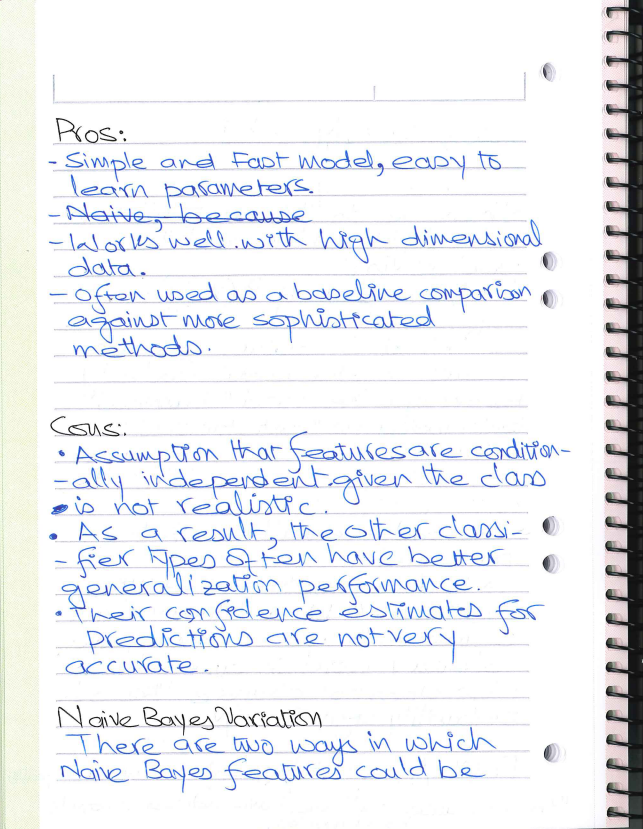 Pros:
- Simple and Fast model, easy to
learn parameters.
- Naive, because
- Works well with high dimensional
data.
- Often used as a baseline comparison
against more sophisticated
methods.
Cons:
• Assumption that features are condition-
- ally independent given the class
is not realistic.
• As a result, the other classi-
- fier types Often have better
generalization performance.
• Their confidence estimates for
Predictions are not very
accurate.
Naive Bayes Variation
There are two ways in which
Naive Bayes features could be